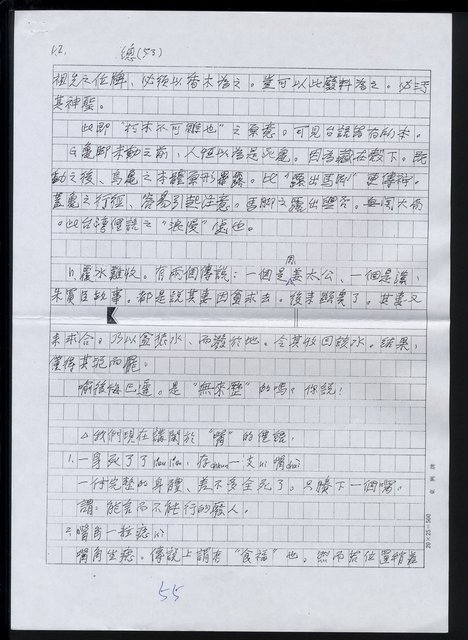 總(53)
祖先之位牌、必須以香木為之。豈可以此廢料為之。必污
其神聖。
此即"朽木不可雕也"之原意。可見台語皆有所本。
G.龜即未動之前、人恒以為是
動之後、烏龜之本體原形畢露。此"露出馬腳"更傳神。
蓋龜之行徑、容易引起注意。馬腳之露出與否。無關大雅
。此台灣俚語之"浪漫"處也。
h.覆水難收。有兩個傳說:一個是周姜太公、一個是漢、
朱買臣故事。都是說其妻因貧求去。後來顯貴了。其妻又
來求合。乃以盆裝水、而潑於地。令其收回該水。結果、
僅得其泥而罷。
喻後悔已遲。是"無來歷"的嗎?你說!
△我們現在講關於"嘴"的俚語:
1.一身死了了、存一支嘴
一付完整的身體、差不多全死了。只賸下一個嘴。
謂:能言而不能行的廢人。
2.嘴角一粒痣
嘴角生痣。傳說上謂有"食福"也。然而若位置稍差
20×25=500
55